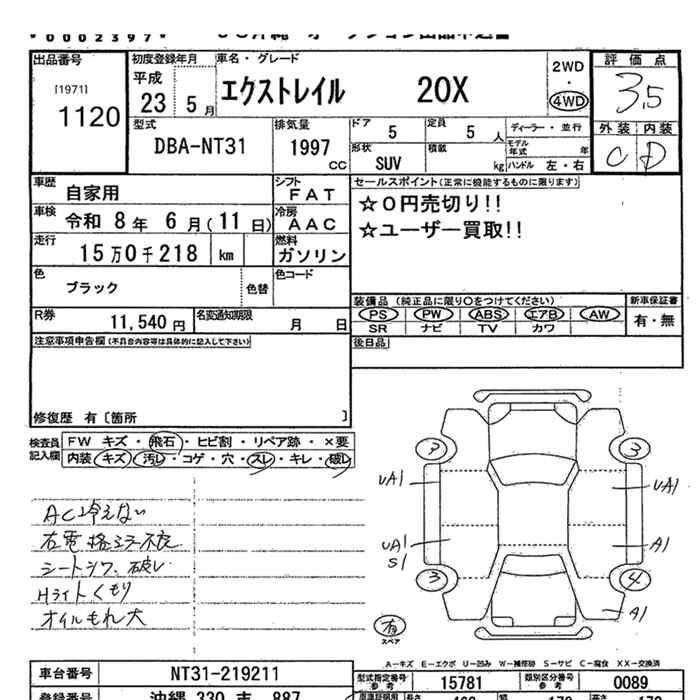 0002397
出品番号 初度登録年月 車名・グレード 2WD 評価点
[1971] 平成 エクストレイル 20X 4WD 3.5
1120 23 5月 外装 内装
型式 排気量 ドア 5 定員 5人 ディーラー・並行 C D
DBA-NT31 1997 cc 形状 SUV 積載 kg モデル年式 年
ハンドル 左・右
車歴 自家用 シフト FAT セールスポイント(正常に機能するものに限ります)
車検 令和 8年 6月(11日) 冷房 AAC ☆0円売切り!!
走行 15万0千218 km 燃料 ガソリン ☆ユーザー買取!!
色 ブラック 色替 色コード
装備品 (純正品に限り○をつけてください) 新車保証書
R券 11,540円 名変通知期限 月 日 PS PW ABS エアB AW 有・無
SR ナビ TV カワ
注意事項申告欄(不具合内容等は具体的に記入して下さい) 後日品
修復歴 有〔箇所 〕
検査員記入欄 FW キズ・飛石・ヒビ割・リペア跡・×要
内装 キズ・汚レ・コゲ・穴・スレ・キレ・破レ
AC冷えない
右電格ミラー不良
シートシワ、破レ
Hライトくもり
オイルもれ大
3
UA1 UA1
UA1 A1
S1
3 4
A1
有
スペア
A-キズ E-エクボ U-凹み W-補修跡 S-サビ C-腐食 XX-交換済
車台番号 NT31-219211 型式指定番号 参考 15781 類別区分番号 参考 0089
登録番号 沖縄 330 887